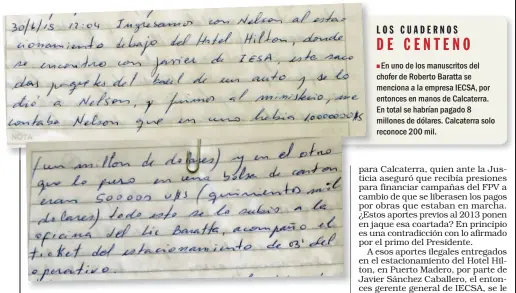 30/6/15 12:04 Ingresamos con Nelson al esta-
cionamiento debajo del Hotel Hilton, donde
se encontro con Javier de IESA, este saco
dos paquetes del baúl de un auto y se lo
dió a Nelson, y fuimos al ministerio, me
contaba Nelson que en uno habia 1000000U$
NOTA
(un millon de dolares) y en el otro
que lo puso en una bolsa de carton
eran 500000 U$S (quinientos mil
dolares) todo esto se lo subio a la
oficina del Lic Baratta, acompaño el
ticket del estacionamiento de 03' del
operativo.
LOS CUADERNOS
DE CENTENO
■ En uno de los manuscritos del
chofer de Roberto Baratta se
menciona a la empresa IECSA, por
entonces en manos de Calcaterra.
En total se habrían pagado 8
millones de dólares. Calcaterra solo
reconoce 200 mil.
para Calcaterra, quien ante la Jus-
ticia aseguró que recibía presiones
para financiar campañas del FPV a
cambio de que se liberasen los pagos
por obras que estaban en marcha.
¿Estos aportes previos al 2013 ponen
en jaque esa coartada? En principio
es una contradicción con lo afirmado
por el primo del Presidente.
A esos aportes ilegales entregados
en el estacionamiento del Hotel Hil-
ton, en Puerto Madero, por parte de
Javier Sánchez Caballero, el enton-
ces gerente general de IECSA, se le